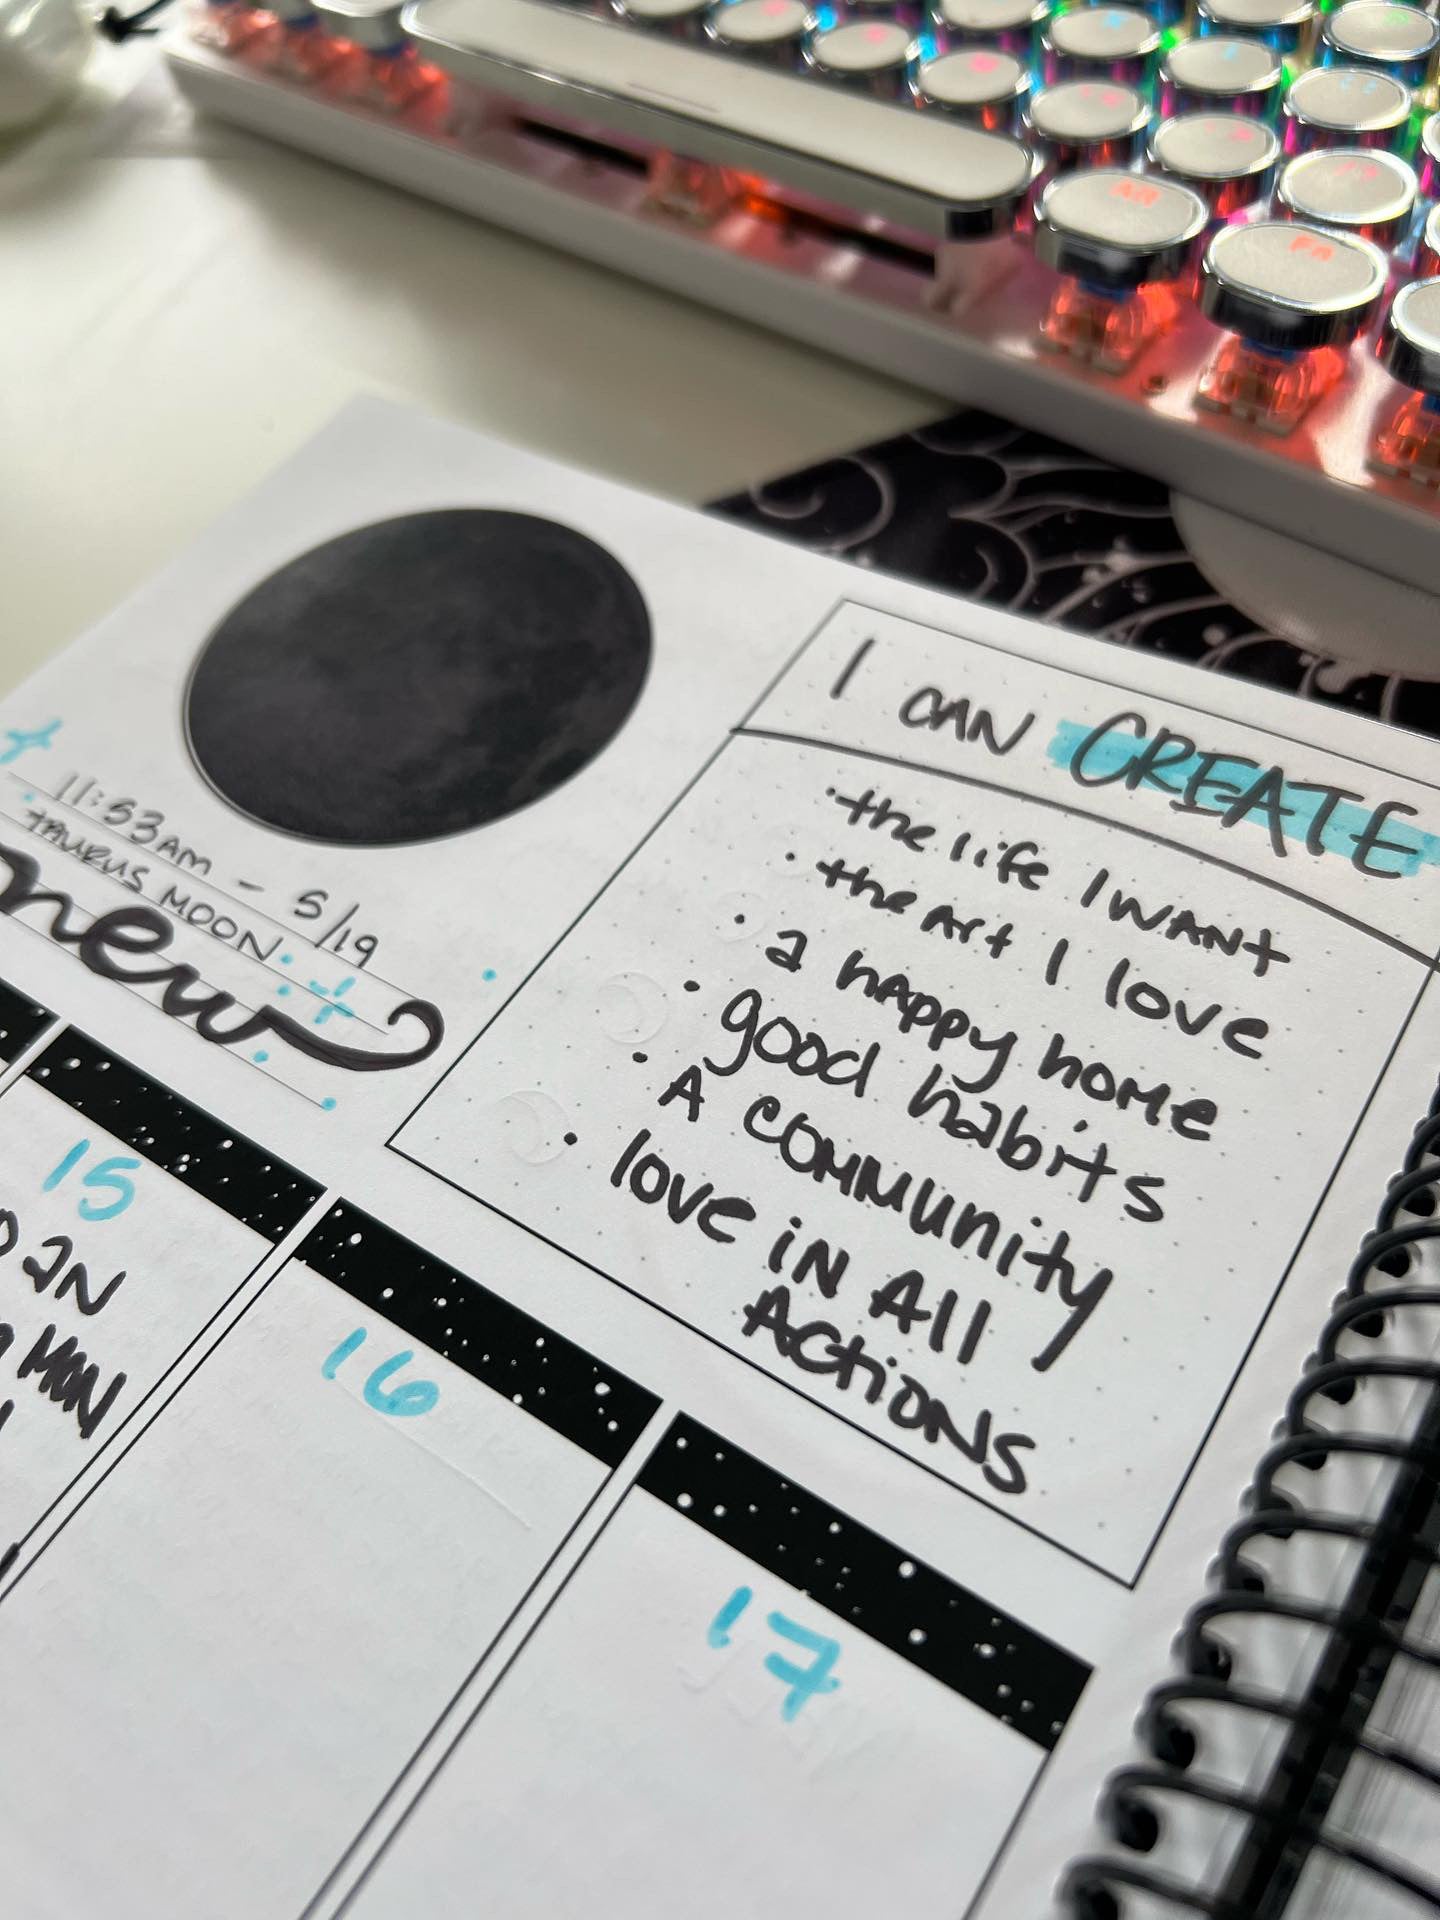 I CAN CREATE
• the life I WANt
• the Art I love
• a hAppy hoME
• good habits
• A COMMUnity
• love iN All
ActioNS
11:53AM - 5/19
tAURUS MOON
new
15
2N
MON
16
17
Alt
FN